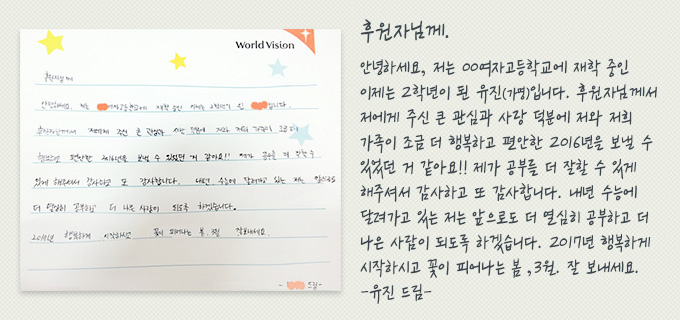 World Vision
후원자님께
안녕하세요, 저는 여자고등학교에 재학 중인 이제는 2학년이 된 입니다.
후원자님께서 저에게 주신 큰 관심과 사랑 덕분에 저와 저희 가족이 조금 더
행복하고 편안한 2016년을 보낼 수 있었던 거 같아요!! 제가 공부를 더 잘할 수
있게 해주셔서 감사하고 또 감사합니다. 내년 수능에 달려가고 있는 저는 앞으로도
더 열심히 공부하고 더 나은 사람이 되도록 하겠습니다.
2017년 행복하게 시작하시고 꽃이 피어나는 봄, 3월. 잘 보내세요.
- 드림-
후원자님께.
안녕하세요, 저는 00여자고등학교에 재학 중인
이제는 2학년이 된 유진(가명)입니다. 후원자님께서
저에게 주신 큰 관심과 사랑 덕분에 저와 저희
가족이 조금 더 행복하고 편안한 2016년을 보낼 수
있었던 거 같아요!! 제가 공부를 더 잘할 수 있게
해주셔서 감사하고 또 감사합니다. 내년 수능에
달려가고 있는 저는 앞으로도 더 열심히 공부하고 더
나은 사람이 되도록 하겠습니다. 2017년 행복하게
시작하시고 꽃이 피어나는 봄 ,3월. 잘 보내세요.
-유진 드림-